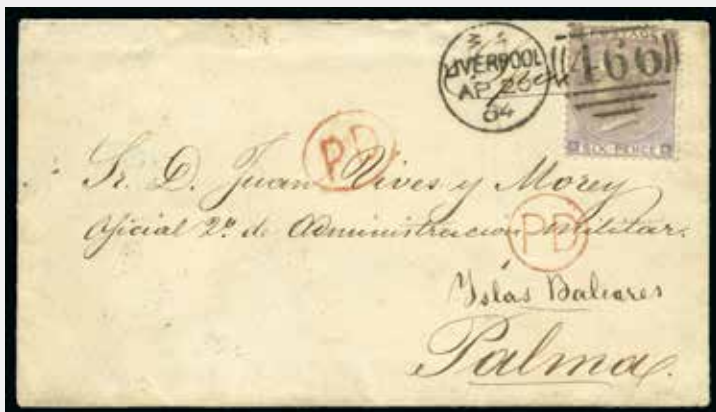 LIVERPOOL
AP 26
64
466
POSTAGE
SIX PENCE
PD
Sr. D. Juan Vives y Morey
Oficial 2º de Administracion militar.
PD
Yslas Baleares
Palma.